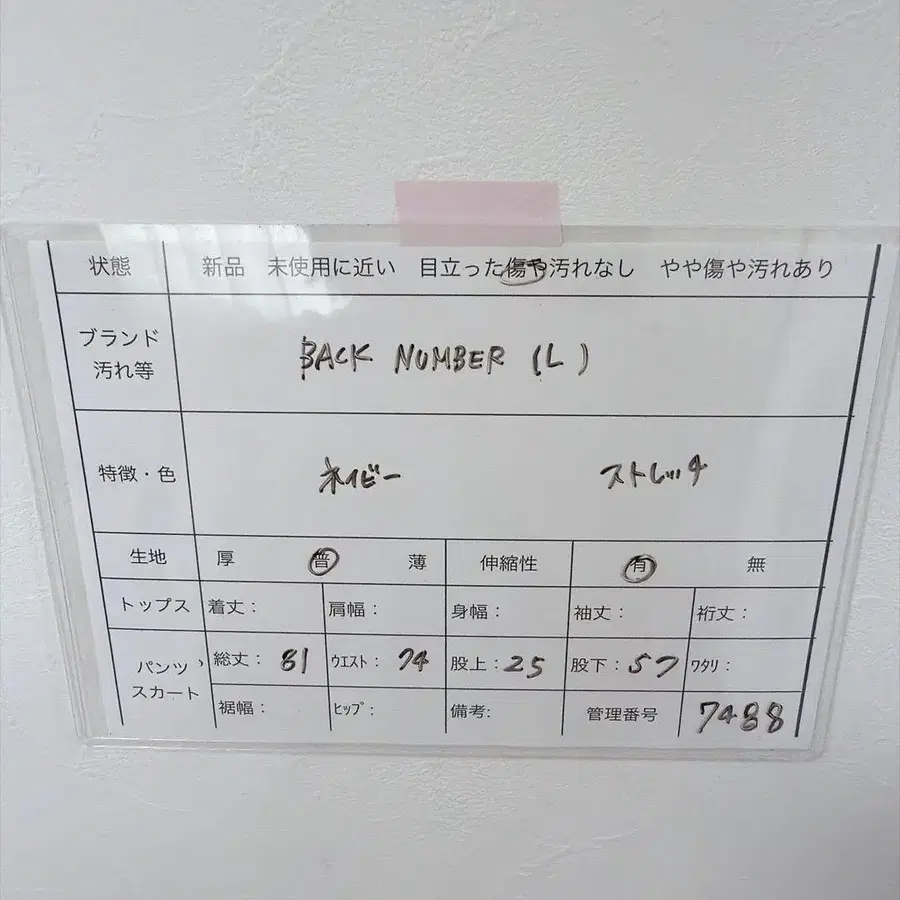 状態 新品 未使用に近い 目立った傷や汚れなし やや傷や汚れあり
ブランド
汚れ等
BACK NUMBER (L)
特徴・色 ネイビー ストレッチ
生地 厚 普 薄 伸縮性 有 無
トップス 着丈： 肩幅： 身幅： 袖丈： 裄丈：
パンツ、
スカート
総丈： 81 ウエスト： 74 股上： 25 股下： 57 ワタリ：
裾幅： ヒップ： 備考: 管理番号 7488